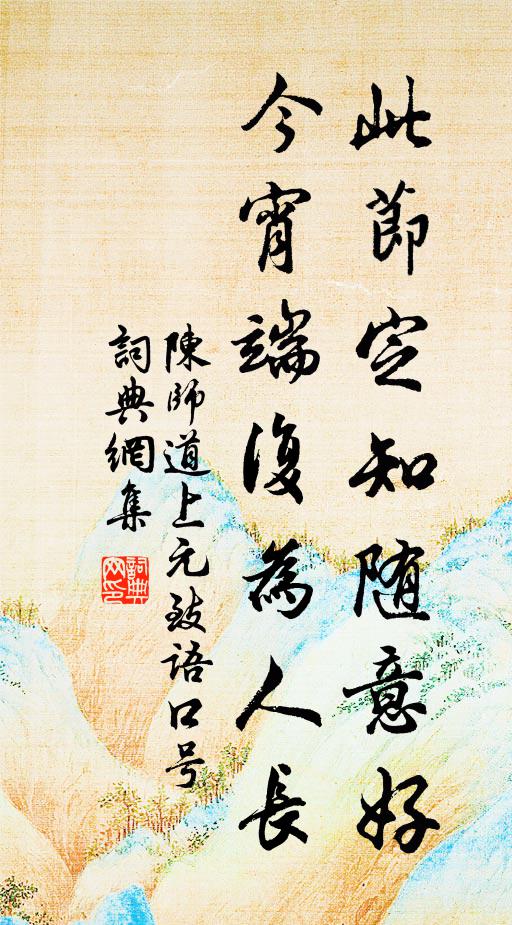 此節定知随意好
今宵端復為人長
陳師道上元致語口号
詞典網集
詞典网印